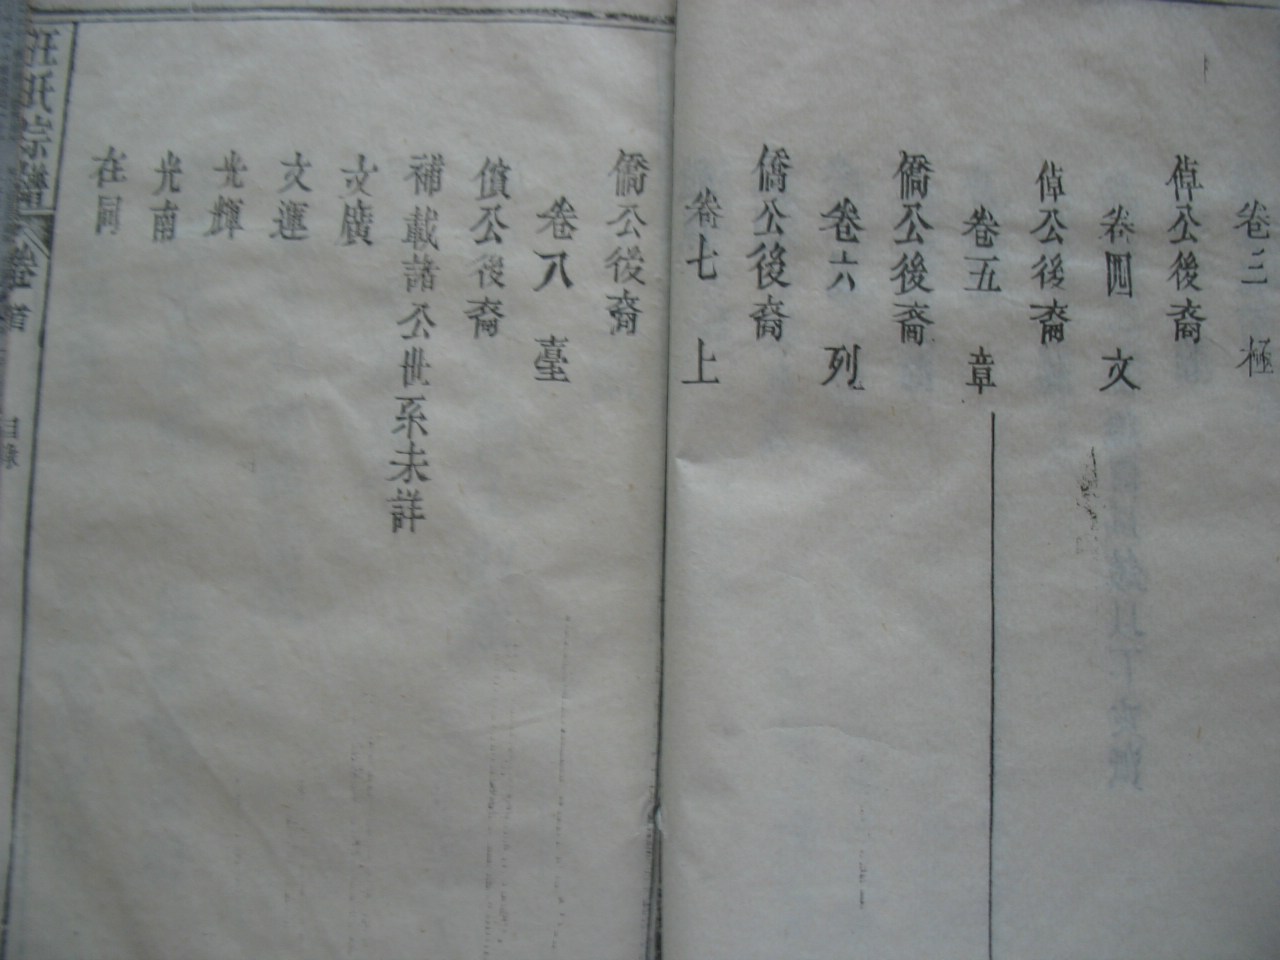 卷三 極
倬公後裔
卷四 文
倬公後裔
卷五 章
僑公後裔
卷六 列
僑公後裔
卷七 上
僑公後裔
卷八 臺
償公後裔
補載諸公世系未詳
文廣
文運
光輝
光南
在同
汪氏宗譜 卷首 目錄